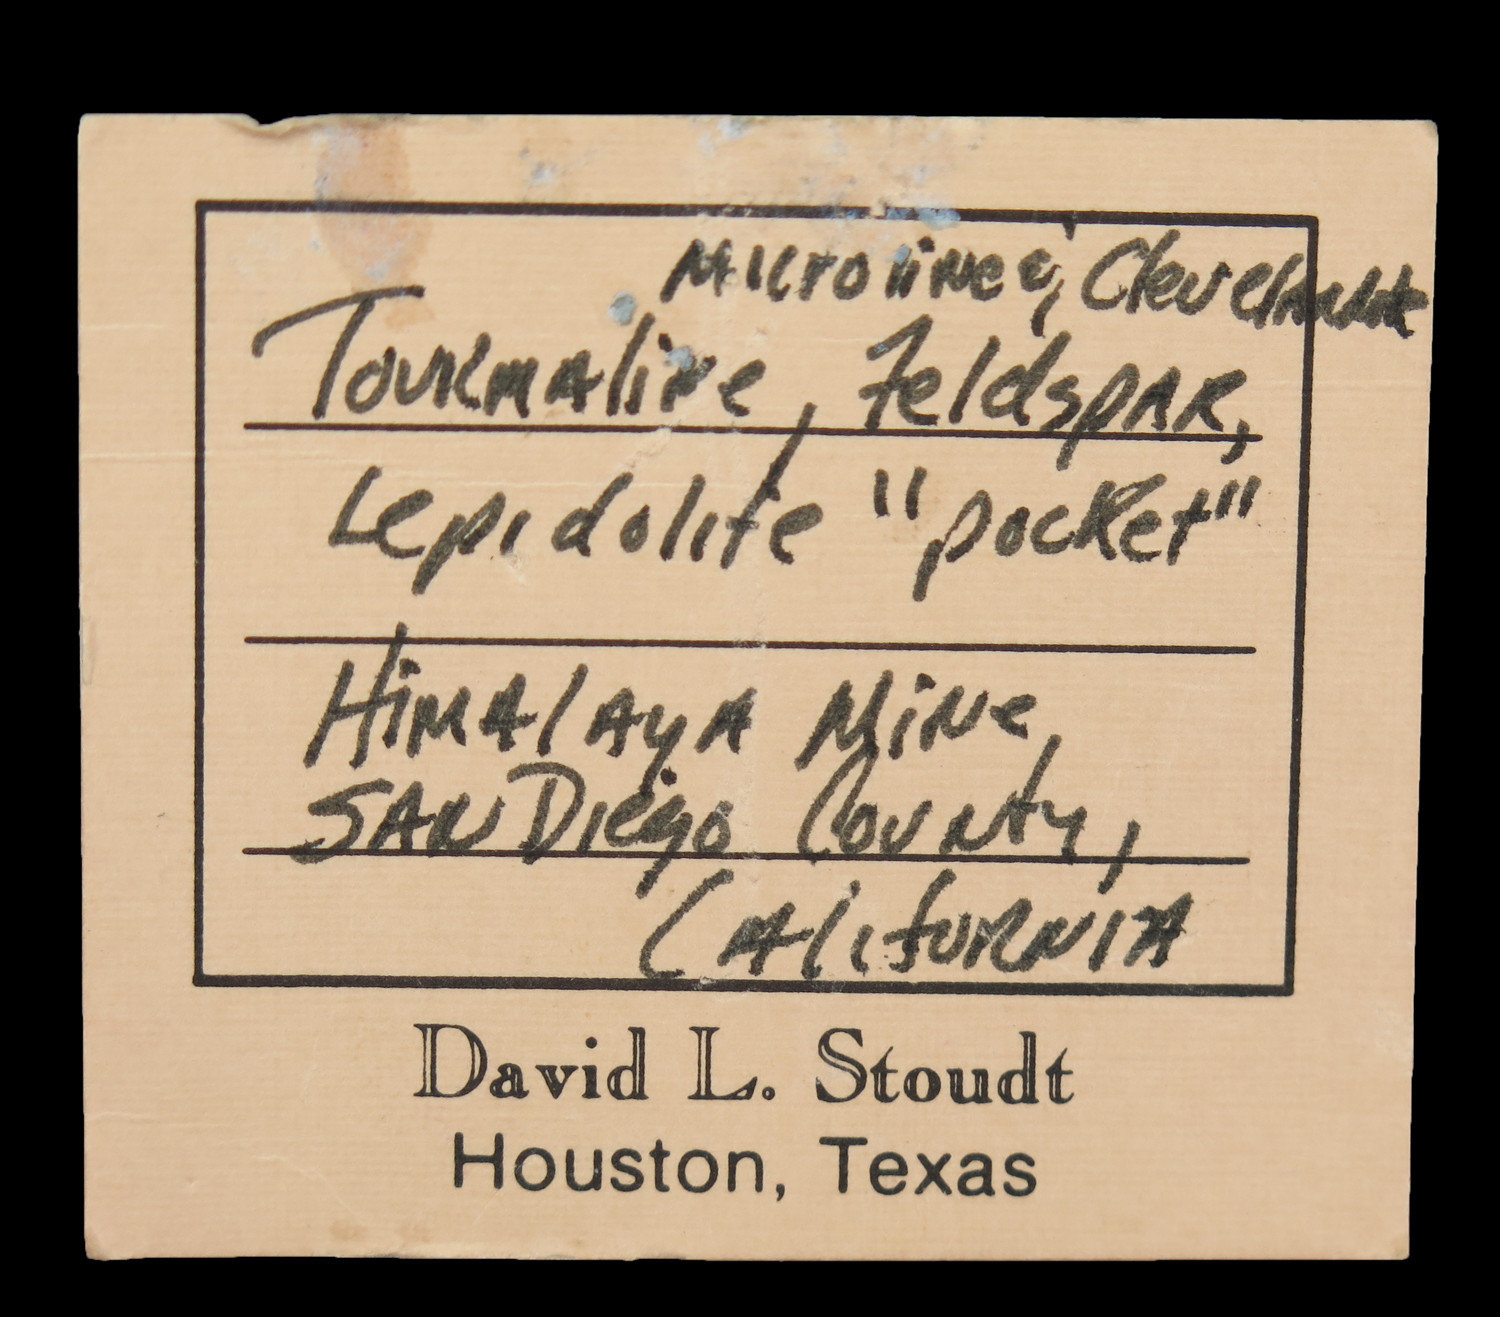 Microline & Clevelandite
Tourmaline, Feldspar,
Lepidolite "pocket"
Himalaya Mine,
San Diego County,
California
David L. Stoudt
Houston, Texas